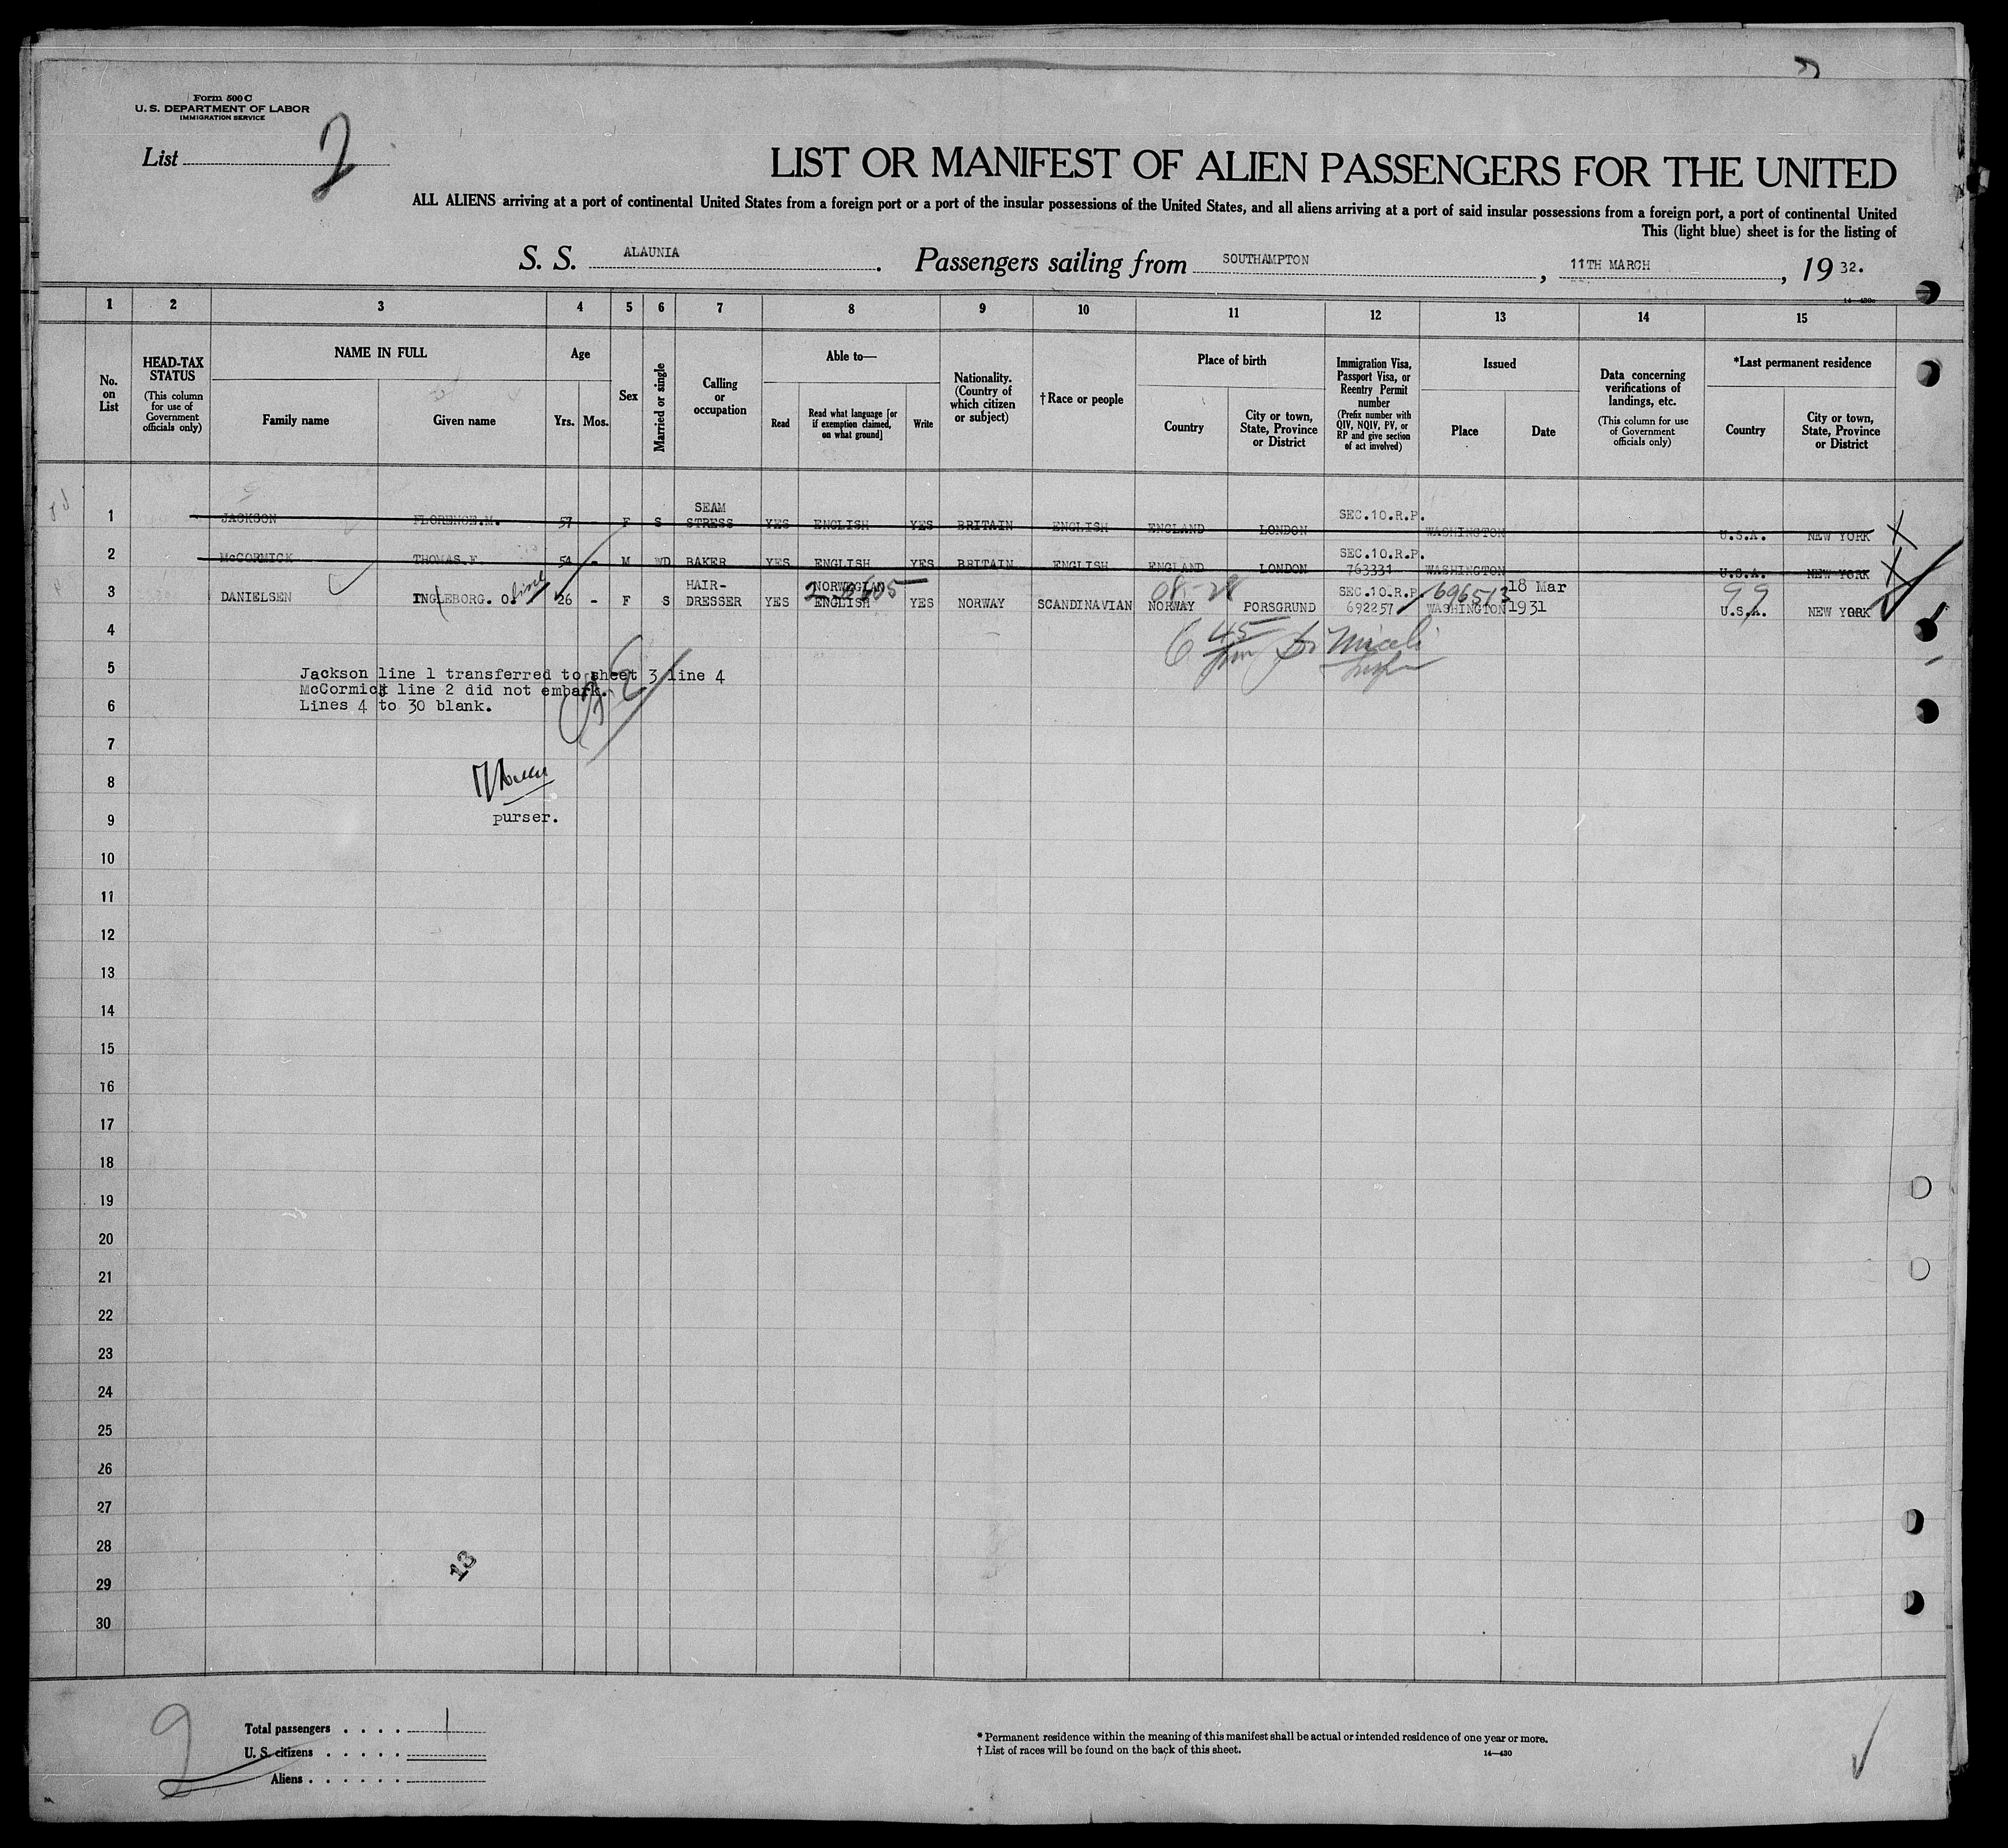 Form 500 C
U. S. DEPARTMENT OF LABOR
IMMIGRATION SERVICE
List 2
LIST OR MANIFEST OF ALIEN PASSENGERS FOR THE UNITED
ALL ALIENS arriving at a port of continental United States from a foreign port or a port of the insular possessions of the United States, and all aliens arriving at a port of said insular possessions from a foreign port, a port of continental United
This (light blue) sheet is for the listing of
S. S. ALAUNIA. Passengers sailing from SOUTHAMPTON, 11TH MARCH, 19 32.
1 2 3 4 5 6 7 8 9 10 11 12 13 14 15
No. on List
HEAD-TAX STATUS
(This column for use of Government officials only)
NAME IN FULL
Family name
Given name
Age
Yrs.
Mos.
Sex
Married or single
Calling or occupation
Able to—
Read
Read what language [or if exemption claimed, on what ground]
Write
Nationality. (Country of which citizen or subject)
†Race or people
Place of birth
Country
City or town, State, Province or District
Immigration Visa, Passport Visa, or Reentry Permit number
(Prefix number with QIV, NQIV, PV, or RP and give section of act involved)
Issued
Place
Date
Data concerning verifications of landings, etc.
(This column for use of Government officials only)
*Last permanent residence
Country
City or town, State, Province or District
1 JACKSON FLORENCE.M. 57 - F S SEAM STRESS YES ENGLISH YES BRITAIN ENGLISH ENGLAND LONDON SEC.10.R.P. WASHINGTON U.S.A. NEW YORK
2 McCORMICK THOMAS.F. 54 - M WD BAKER YES ENGLISH YES BRITAIN ENGLISH ENGLAND LONDON SEC.10.R.P. 763331 WASHINGTON U.S.A. NEW YORK
3 DANIELSEN INGLEBORG. O. 26 - F S HAIR- DRESSER YES NORWEGIAN ENGLISH YES NORWAY SCANDINAVIAN NORWAY PORSGRUND SEC.10.R.P. 692257 696513 WASHINGTON 18 Mar 1931 99 U.S.A. NEW YORK
4
5
6
Jackson line 1 transferred to sheet 3 line 4
McCormick line 2 did not embark.
Lines 4 to 30 blank.
7
8
9
purser.
10
11
12
13
14
15
16
17
18
19
20
21
22
23
24
25
26
27
28
29
30
13
Total passengers . . . . 1
U. S. citizens . . . . .
Aliens . . . . . .
* Permanent residence within the meaning of this manifest shall be actual or intended residence of one year or more.
† List of races will be found on the back of this sheet.
14—430